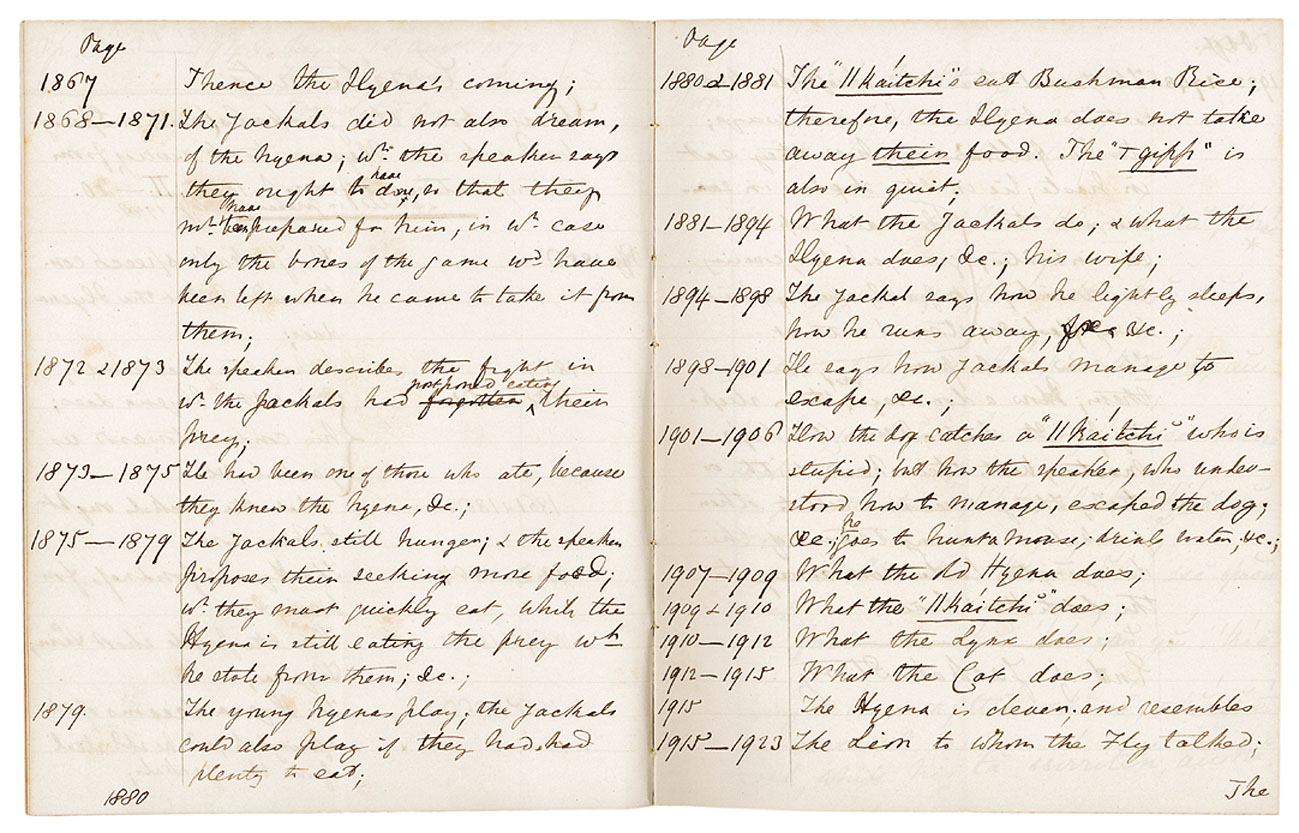 Page
1867 Thence the Hyena's coming;
1868—1871. The Jackals did not also dream,
of the hyena; wh. the speaker says
they ought to have done, so that they
mt. have been prepared for him, in wh. case
only the bones of the game wd. have
been left when he came to take it from
them;
1872 & 1873 The speaker describes the fight in
wh. the Jackals had forgotten postponed eating their
prey;
1873—1875 He had been one of those who ate, because
they knew the hyena, &c.;
1875—1879 The Jackals still hunger; & the speaker
proposes their seeking more food;
wh. they must quickly eat, while the
Hyena is still eating the prey wh.
he stole from them; &c.;
1879. The young hyenas play; the Jackals
could also play if they had had
plenty to eat;
1880
Page
1880 & 1881 The "||káitchi" eat Bushman Rice;
therefore, the Hyena does not take
away their food. The is
also in quiet;
1881—1894 What the Jackals do; & what the
Hyena does, &c.; his wife;
1894—1898 The Jackal says how he lightly sleeps,
how he runs away, &c.;
1898—1901 He says how Jackals manage to
escape, &c.;
1901—1906 How the dog catches a "||káitchi" who is
stupid; but how the speaker, who under-
stood how to manage, escaped the dog;
&c.; he goes to hunt a mouse; drinks water, &c.;
1907—1909 What the old Hyena does;
1909 & 1910 What the "||káitchi" does;
1910—1912 What the Lynx does;
1912—1915 What the Cat does;
1915 The Hyena is clever; and resembles
1915—1923 The Lion to whom the Fly talked;
The